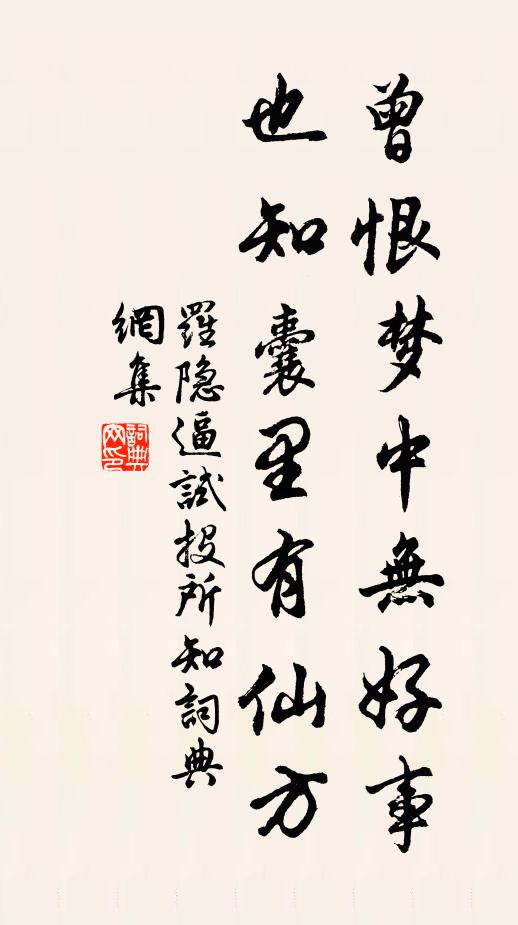 曾恨梦中無好事
也知囊里有仙方
羅隐逼試投所知詞典
網集
詞典网印